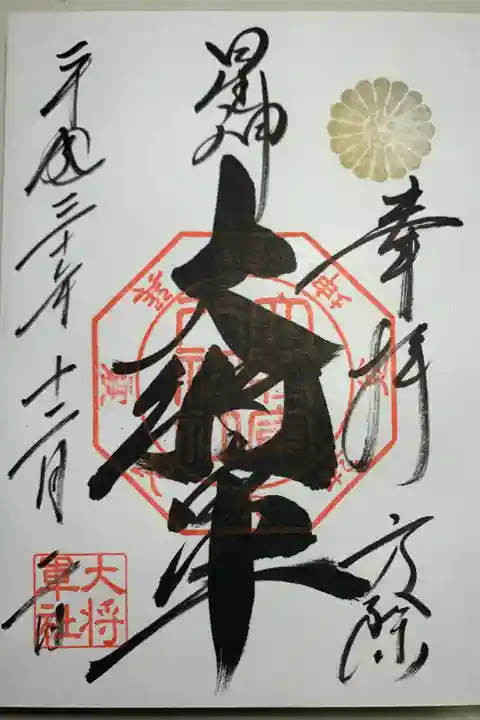 奉拝 方除
星神
大将軍
平成三十年十二月二日
大将
軍社